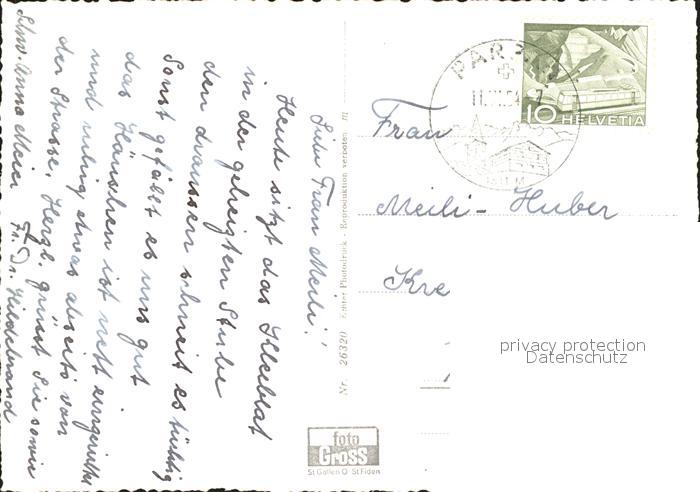 Liebe Frau Meili!
Heute sitzt das Kleeblat
in der geheizten Stube
den draussen schneit es tüchtig
Sonst gefällt es uns gut
das Häuschen ist nett eingerichtet
und ruhig etwas abseits von
der Strasse. Herzl. grüsst Sie sowie
Schw. Anna Meier Fr. Dr. Hildebrand
Nr. 26320 Echter Photodruck - Reproduktion verboten
foto
Gross
St Gallen O St Fiden
PARP
11. 54. 7
10 HELVETIA
Frau
Meili-Huber
Kre
privacy protection
Datenschutz